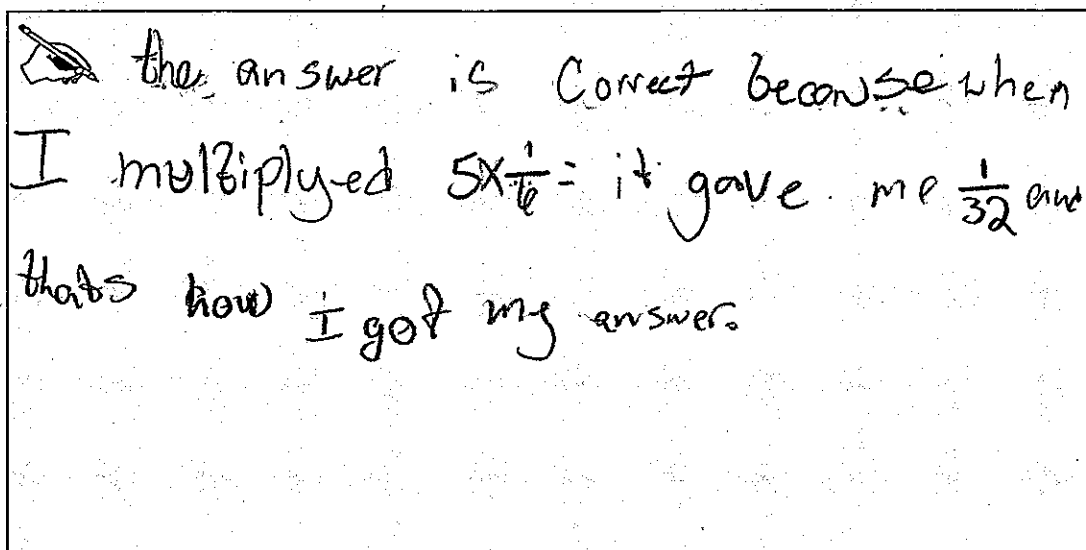 the answer is Correct becouse when
I multiplyed 5x1/6= it gave me 1/32 and
thats how I got my answer.